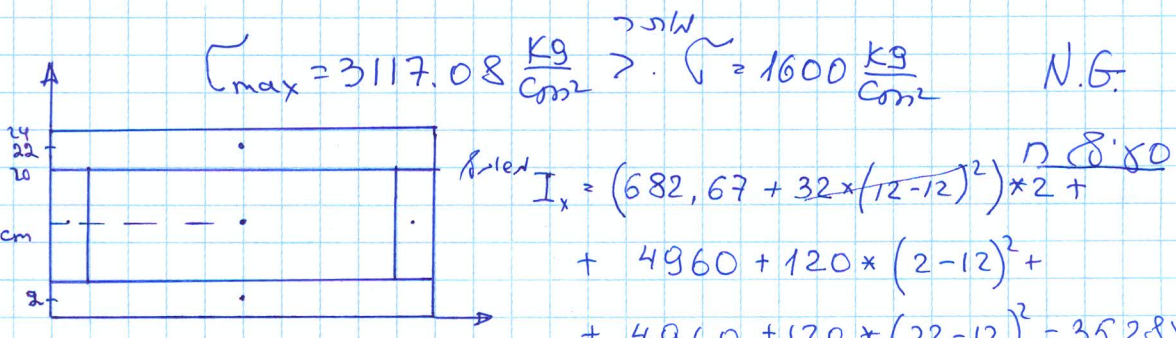 מותר
σmax = 3117.08 Kg/cm² > . σ = 1600 Kg/cm² N.G.
24
22
20
cm
2
Ix = (682,67 + 32*(12-12)²)*2 +
+ 4960 + 120 * (2-12)² +
+ 4960 + 120 * (22-12)² = 3528